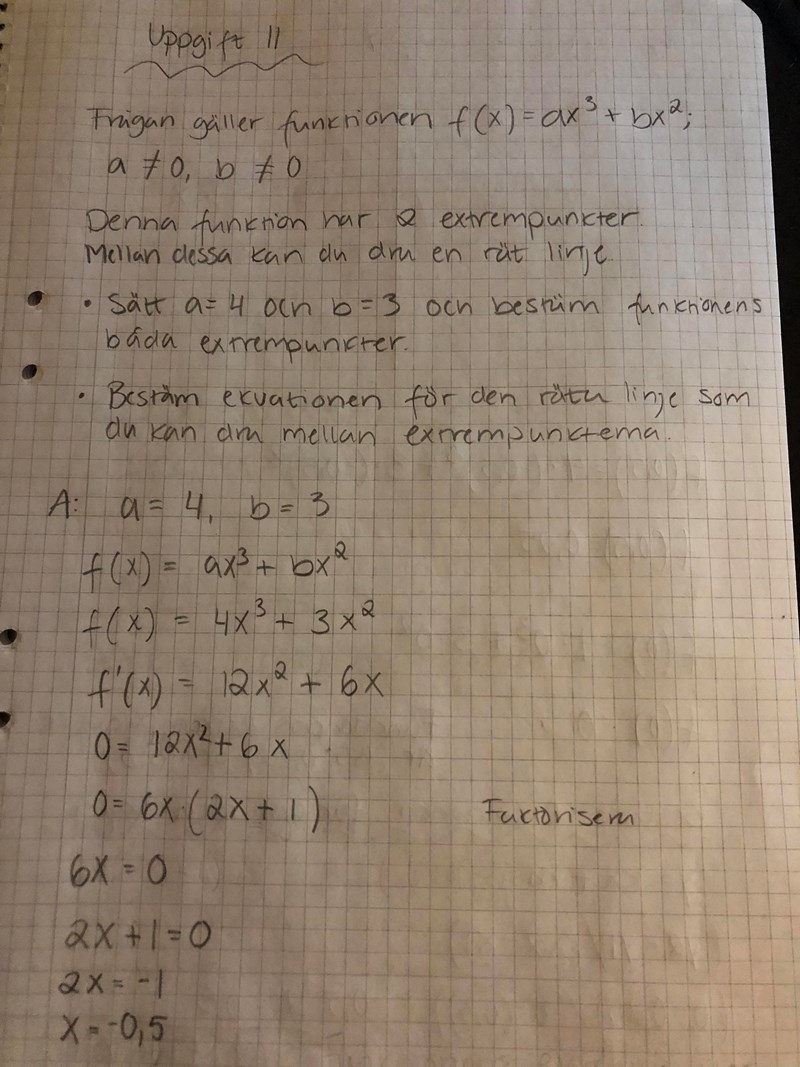 Uppgift 11
Frågan gäller funktionen f(x) = ax³ + bx²;
a ≠ 0, b ≠ 0
Denna funktion har 2 extrempunkter.
Mellan dessa kan du dra en rät linje.
• Sätt a = 4 och b = 3 och bestäm funktionens
båda extrempunkter.
• Bestäm ekvationen för den räta linje som
du kan dra mellan extrempunkterna.
A: a = 4, b = 3
f(x) = ax³ + bx²
f(x) = 4x³ + 3x²
f'(x) = 12x² + 6x
0 = 12x² + 6x
0 = 6x·(2x + 1) Faktorisera
6x = 0
2x + 1 = 0
2x = -1
x = -0,5